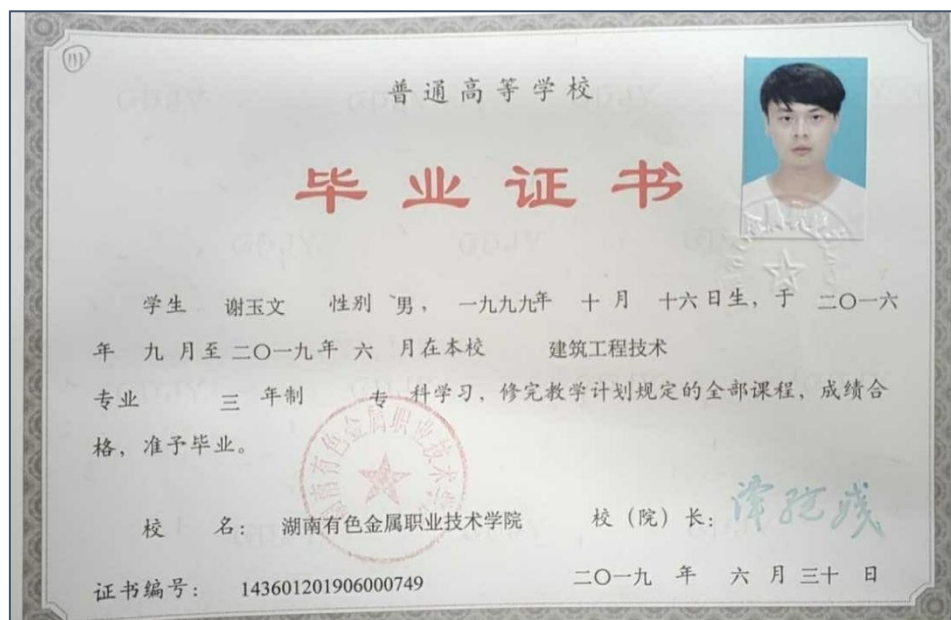 (11)
普通高等学校
毕业证书
学生 谢玉文 性别 男， 一九九九年 十 月 十六日生，于 二〇一六
年 九 月至 二〇一九年 六 月在本校 建筑工程技术
专业 三 年制 专 科学习，修完教学计划规定的全部课程，成绩合
格，准予毕业。
湖南有色金属职业技术学院
校 名： 湖南有色金属职业技术学院 校（院）长：
证书编号： 143601201906000749 二〇一九 年 六 月 三十 日